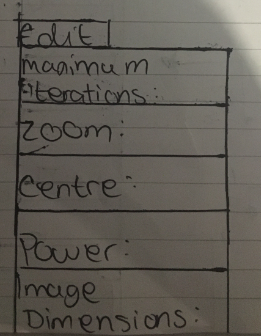 Edit
Maximum
iterations:
Zoom:
Centre:
Power:
Image
Dimensions: